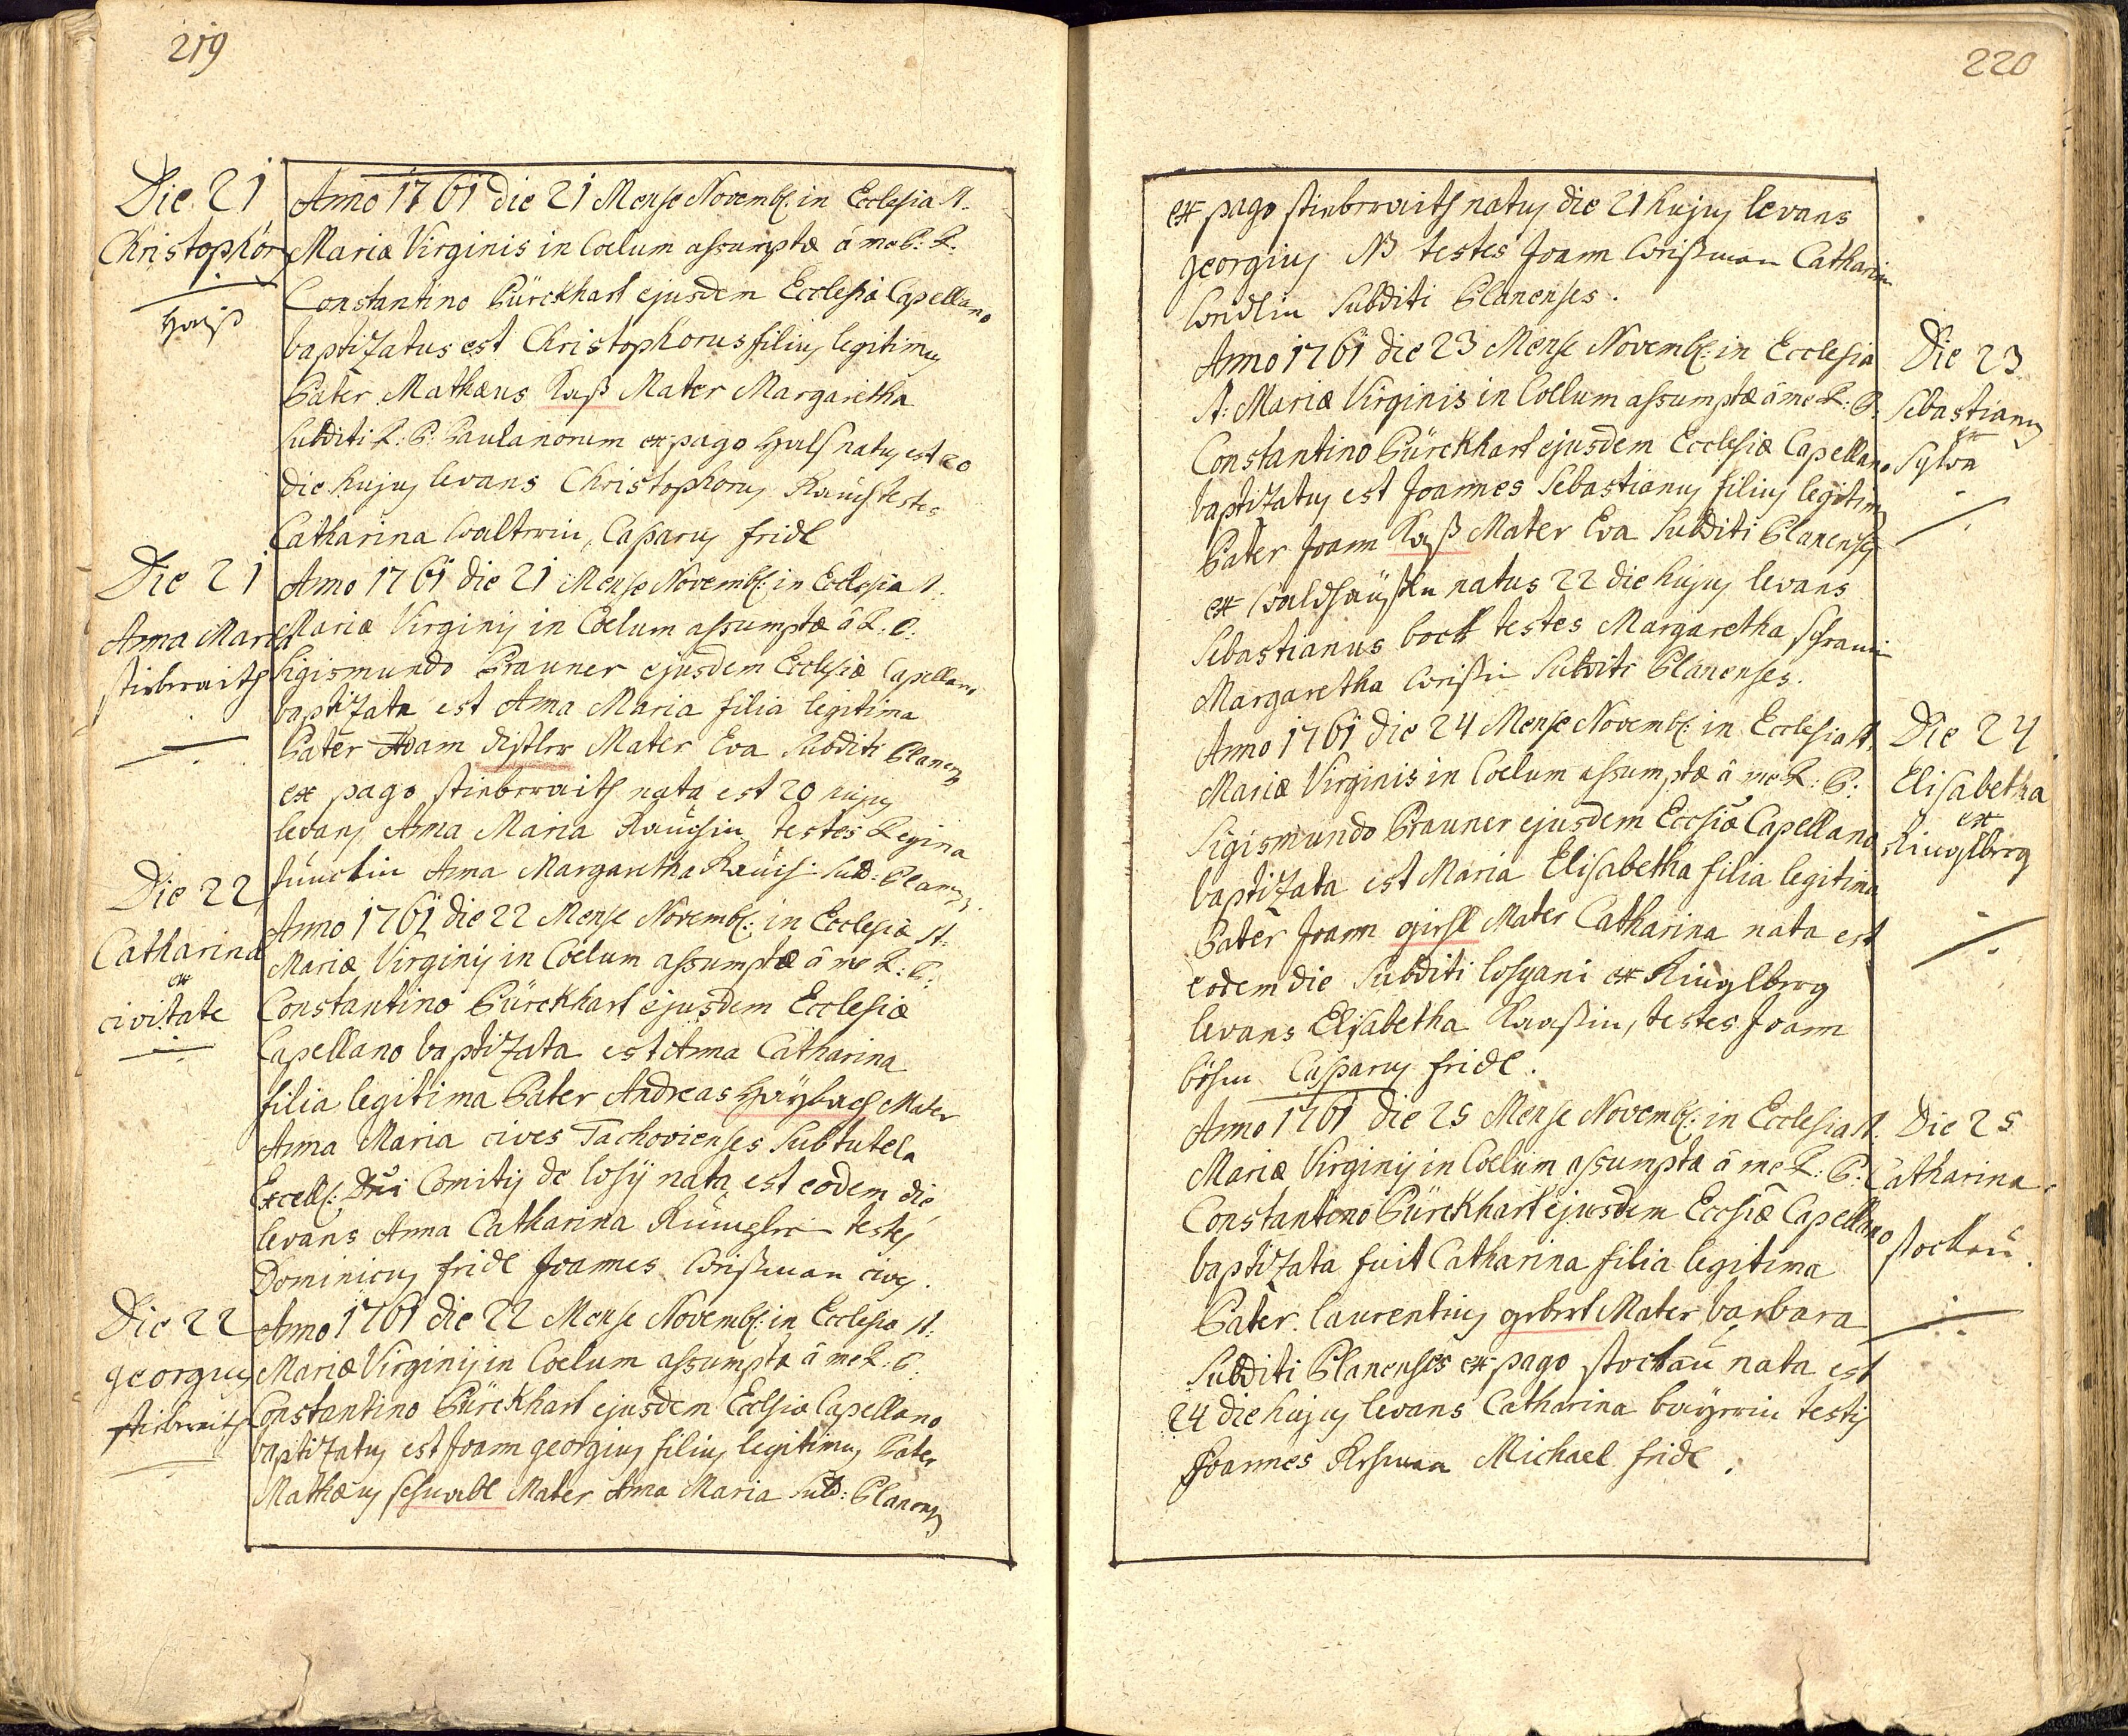 219
Die 21
Christophor
Anno 1761 die 21 Mense Novemb: in Ecclesia St.
Mariæ Virginis in Coelum assumptæ â me P: R:
Constantino Pürckhart ejusdem Ecclesiæ Capellano
baptizatus est Christophorus filius legitimus
Pater Mathæus Kaß Mater Margaretha
subditi R: P: Paulanorum ex pago Hals natus est 20
die hujus levans Christophorus Rauch testes
Catharina Walterin, Casparus fridl
Die 21
Anna Maria
stieberraith
Anno 1761 die 21 Mense Novemb: in Ecclesia St.
Mariæ Virginis in Coelum assumptæ â R: P:
Sigismundo Prauner ejusdem Ecclesiæ Capellano
baptizata est Anna Maria filia legitima
Pater Adam distler Mater Eva Subditi Planens
ex pago stieberraith nata est 20 hujus
levans Anna Maria Rauchin testes Regina
Anna Margaretha Rauch: Subd: Planens.
Die 22
Catharina
ex
civitate
Anno 1761 die 22 Mense Novemb: in Ecclesiæ St:
Mariæ Virginis in Coelum assumptæ â me R: P:
Constantino Pürckhart ejusdem Ecclesiæ
Capellano baptizata est Anna Catharina
filia legitima Pater Andreas Haÿbach Mater
Anna Maria cives Tachovienses Sub tutela
Excell: Dni Comitis de losÿ nata est eodem die
levans Anna Catharina testes
Dominicus fridl Joannes Weißman cives.
Die 22
georgius
stieberraith
Anno 1761 die 22 Mense Novemb: in Ecclesia St:
Mariæ Virginis in Coelum assumpta â me R: P:
Constantino Pürckhart ejusdem Ecclsiæ Capellano
baptizatus est Joann georgius filius legitimus Pater
Mathæus schwabl Mater Anna Maria Subd: Planens
220
ex pago stieberraith natus die 21 hujus levans
georgius testes Joann Weißman Catharin
Subditi Planenses.
Die 23
Sebastianus
ex
Sylva
Anno 1761 die 23 Mense Novemb: in Ecclesia
St: Mariæ Virginis in Coellum assumptæ â me R: P.
Constantino Pürckhart ejusdem Ecclesiæ Capellano
baptizatus est Joannes Sebastianus filius legitim
Pater Joann Kaß Mater Eva Subditi Planenses
ex Waldhäußln natus 22 die hujus levans
Sebastianus bock testes Margaretha
Margaretha Weißin Subditi Planenses.
Die 24
Elisabetha
ex
Ringlberg
Anno 1761 die 24 Mense Novemb: in Ecclesia St.
Mariæ Virginis in Coelum assumptæ â me R: P:
Sigismundo Prauner ejusdem Eccsiæ Capellano
baptizata est Maria Elisabetha filia legitima
Pater Joann girschl Mater Catharina nata est
eodem die Subditi losyani ex Ringlberg
levans Elisabetha Kaaßin, testes Joann
böhm Casparus fridl.
Die 25
Catharina
stockau
Anno 1761 die 25 Mense Novemb: in Ecclesia St.
Mariæ Virginis in Coelum assumpta â me R: P:
Constantino Pürckhart ejusdem Eccsiæ Capellano
baptizata fuit Catharina filia legitima
Pater laurentius gebert Mater barbara
Subditi Planenses ex pago stockau nata est
24 die hujus levans Catharina baÿrrin testes
Joannes Michael fridl.